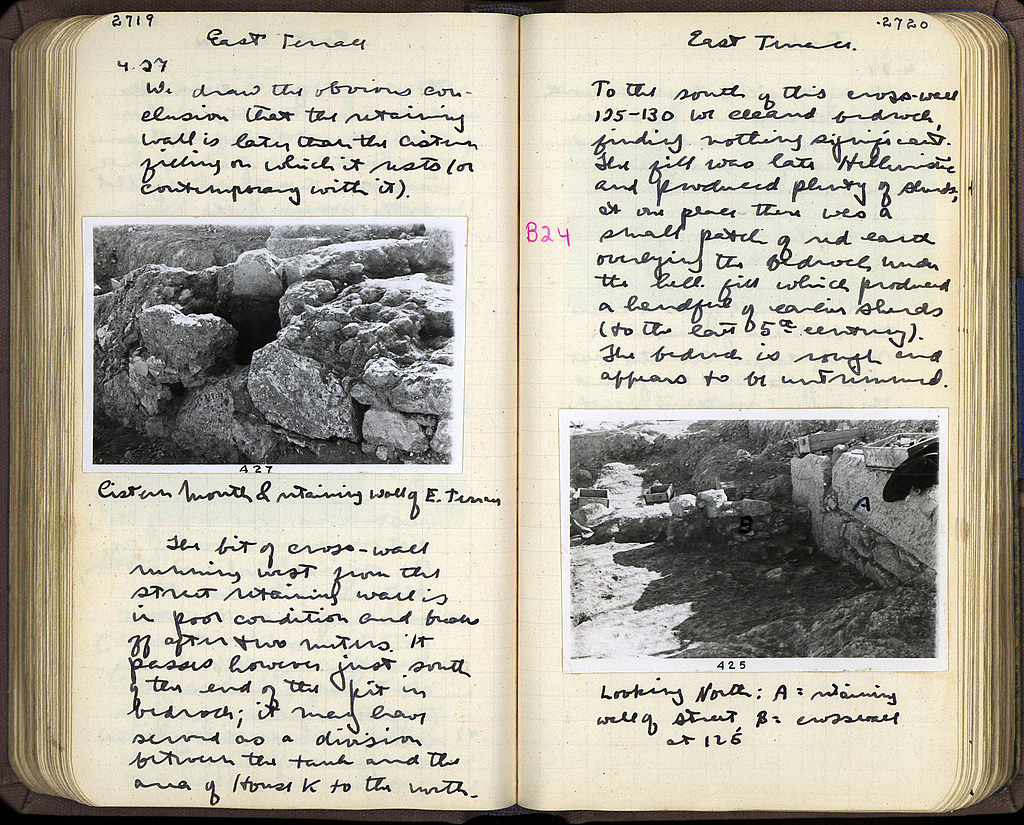 2719
East Terrace
4.27
We draw the obvious con-
clusion that the retaining
wall is later than the cistern
filling on which it rests (or
contemporary with it).
427
Cistern Mouth & retaining wall of E. Terrace
The bit of cross-wall
running west from the
street retaining wall is
in poor condition and breaks
off after two meters. It
passes however just south
of the end of the pit in
bedrock; it may have
served as a division
between the tank and the
area of House K to the north.
2720
East Terrace.
To the south of this cross-wall
125-130 we cleared bedrock,
finding nothing significant.
The fill was late Hellenistic
and produced plenty of sherds,
at one place there was a
B24
small patch of red earth
overlying the bedrock under
the hell. fill which produced
a handful of earlier sherds
(to the late 5th century).
The bedrock is rough and
appears to be untrimmed.
A
B
425
Looking North: A = retaining
wall of street, B = crosswall
at 125